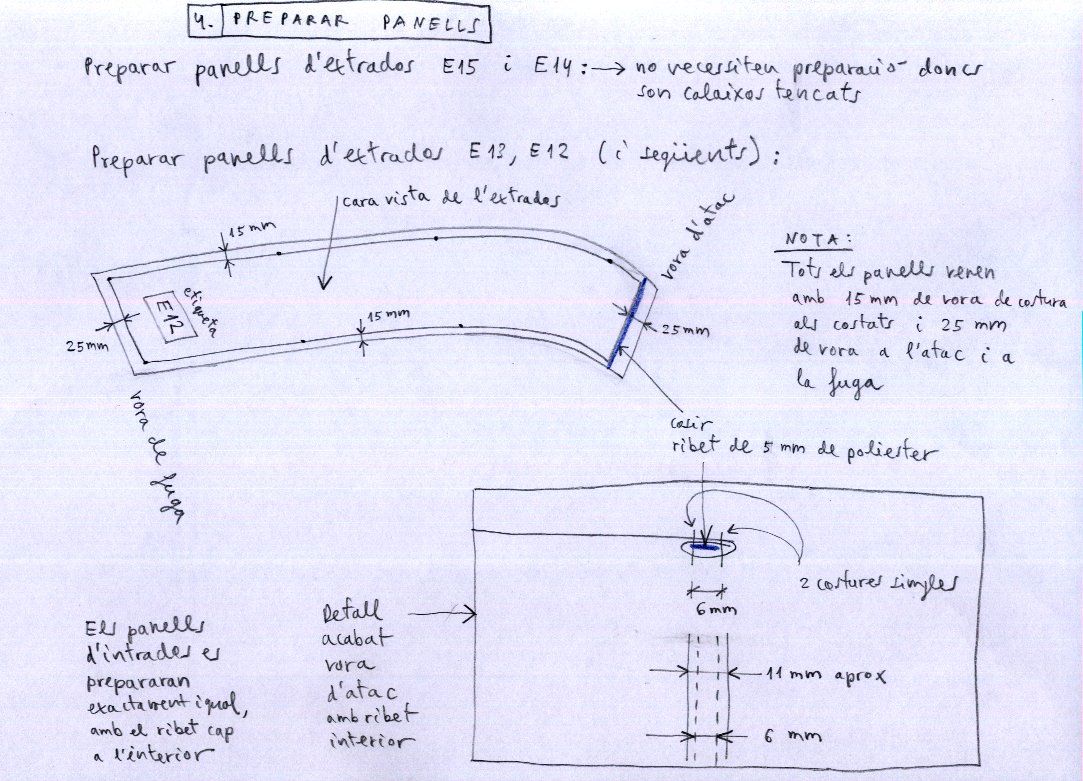 4. PREPARAR PANELLS
Preparar panells d'extrados E15 i E14: → no necessiten preparació doncs
son calaixos tencats
Preparar panells d'extrados E13, E12 (i següents):
cara vista de l'extrados
15 mm
vora d'atac
NOTA:
Tots els panells venen
amb 15 mm de vora de costura
als costats i 25 mm
de vora a l'atac i a
la fuga
etiqueta
E12
15 mm
25 mm
25 mm
vora de fuga
cosir
ribet de 5 mm de poliester
2 costures simples
6 mm
Els panells
d'intrados es
prepararan
exactament igual,
amb el ribet cap
a l'interior
Detall
acabat
vora
d'atac
amb ribet
interior
11 mm aprox
6 mm